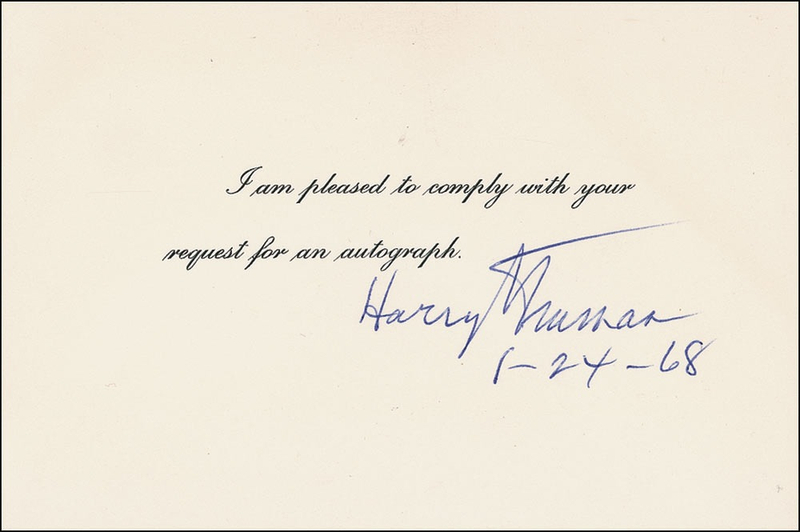 I am pleased to comply with your
request for an autograph.
Harry Truman
1-24-68